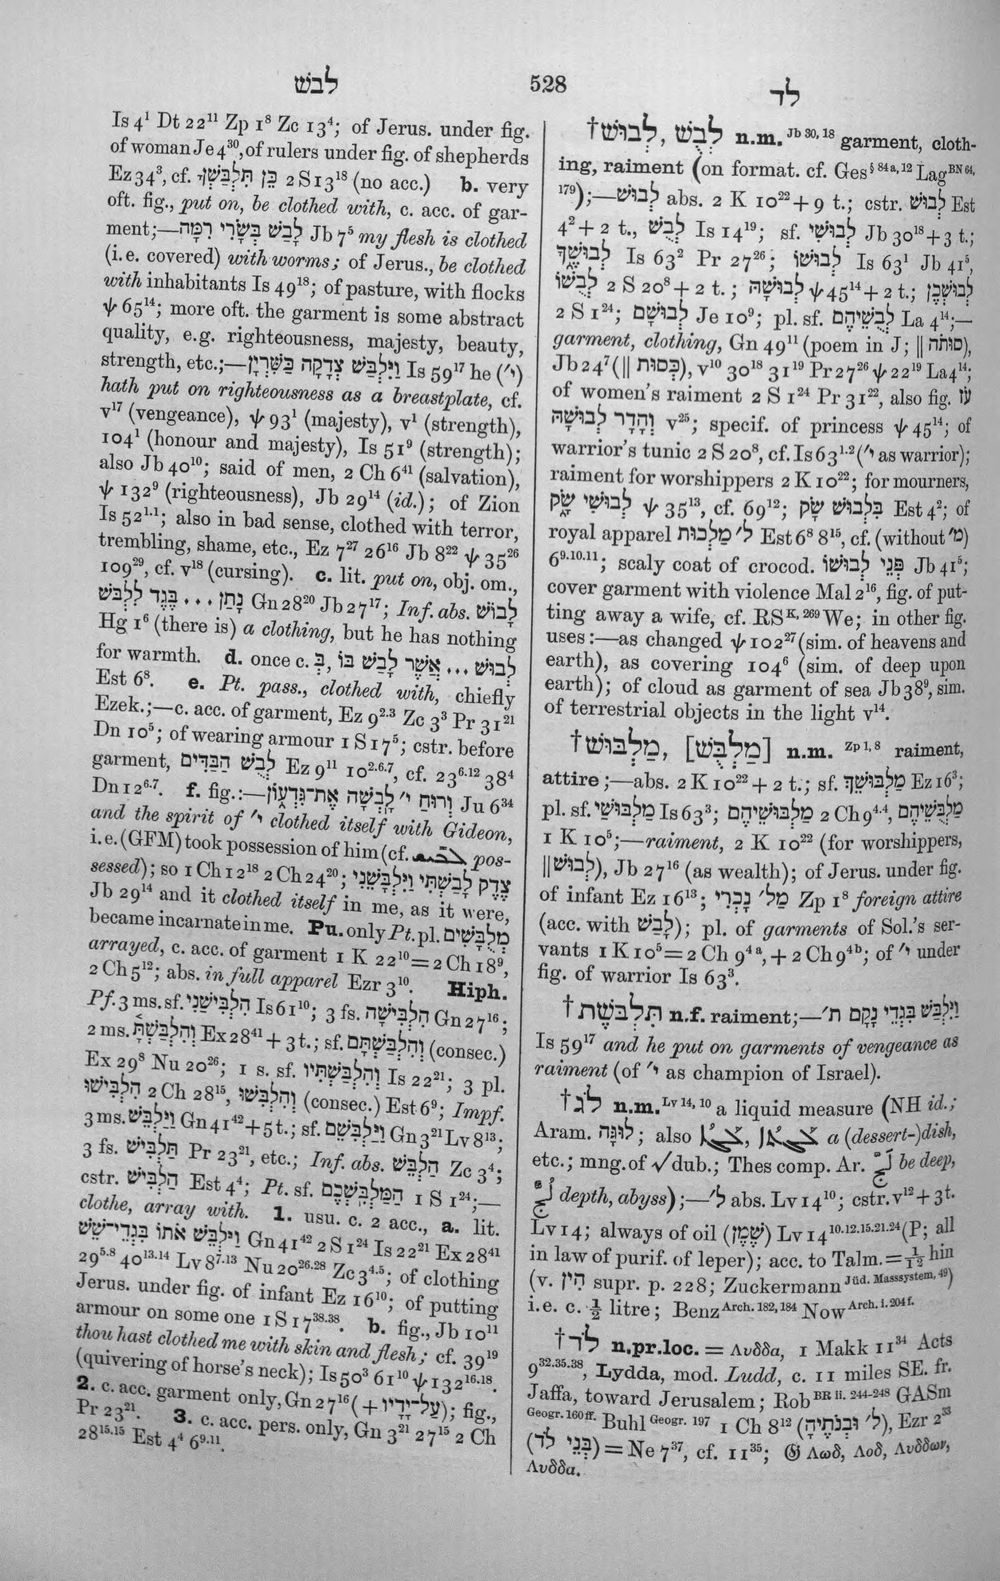 לבשׁ
528
לד
Is 4¹ Dt 22¹¹ Zp 1⁸ Zc 13⁴; of Jerus. under fig.
of woman Je 4³⁰, of rulers under fig. of shepherds
Ez 34³, cf. כֵּן תִּלְבַּשְׁןָ 2 S 13¹⁸ (no acc.) b. very
oft. fig., put on, be clothed with, c. acc. of gar-
ment;—לָבַשׁ בְּשָׂרִי רִמָּה Jb 7⁵ my flesh is clothed
(i.e. covered) with worms; of Jerus., be clothed
with inhabitants Is 49¹⁸; of pasture, with flocks
ψ 65¹⁴; more oft. the garment is some abstract
quality, e.g. righteousness, majesty, beauty,
strength, etc.;—וַיִּלְבַּשׁ צְדָקָה כַּשִּׁרְיָן Is 59¹⁷ he (י׳)
hath put on righteousness as a breastplate, cf.
v¹⁷ (vengeance), ψ 93¹ (majesty), v¹ (strength),
104¹ (honour and majesty), Is 51⁹ (strength);
also Jb 40¹⁰; said of men, 2 Ch 6⁴¹ (salvation),
ψ 132⁹ (righteousness), Jb 29¹⁴ (id.); of Zion
Is 52¹·¹; also in bad sense, clothed with terror,
trembling, shame, etc., Ez 7²⁷ 26¹⁶ Jb 8²² ψ 35²⁶
109²⁹, cf. v¹⁸ (cursing). c. lit. put on, obj. om.,
נָתַן . . . בֶּגֶד לִלְבֹּשׁ Gn 28²⁰ Jb 27¹⁷; Inf. abs. לָבוֹשׁ
Hg 1⁶ (there is) a clothing, but he has nothing
for warmth. d. once c. בְּ, לְבוּשׁ ... אֲשֶׁר לָבַשׁ בּוֹ
Est 6⁸. e. Pt. pass., clothed with, chiefly
Ezek.;—c. acc. of garment, Ez 9²·³ Zc 3³ Pr 31²¹
Dn 10⁵; of wearing armour 1 S 17⁵; cstr. before
garment, לְבֻשׁ הַבַּדִּים Ez 9¹¹ 10²·⁶·⁷, cf. 23⁶·¹² 38⁴
Dn 12⁶·⁷. f. fig.:—וְרוּחַ י׳ לָֽבְשָׁה אֶת־גִּדְעוֹן Ju 6³⁴
and the spirit of י׳ clothed itself with Gideon,
i.e. (GFM) took possession of him (cf. pos-
sessed); so 1 Ch 12¹⁸ 2 Ch 24²⁰; צֶדֶק לָבַשְׁתִּי וַיִּלְבָּשֵׁנִי
Jb 29¹⁴ and it clothed itself in me, as it were,
became incarnate in me. Pu. only Pt. pl. מְלֻבָּשִׁים
arrayed, c. acc. of garment 1 K 22¹⁰ = 2 Ch 18⁹,
2 Ch 5¹²; abs. in full apparel Ezr 3¹⁰. Hiph.
Pf. 3 ms. sf. הִלְבִּישַׁנִי Is 61¹⁰; 3 fs. הִלְבִּישָׁה Gn 27¹⁶;
2 ms. וְהִלְבַּשְׁתָּ Ex 28⁴¹ + 3 t.; sf. וְהִלְבַּשְׁתָּם (consec.)
Ex 29⁸ Nu 20²⁶; 1 s. sf. וְהִלְבַּשְׁתִּיו Is 22²¹; 3 pl.
הִלְבִּישׁוּ 2 Ch 28¹⁵, וְהִלְבִּשׁוּ (consec.) Est 6⁹; Impf.
3 ms. וַיַּלְבֵּשׁ Gn 41⁴² + 5 t.; sf. וַיַּלְבִּשֵׁם Gn 3²¹ Lv 8¹³;
3 fs. תַּלְבִּישׁ Pr 23²¹, etc.; Inf. abs. הַלְבֵּשׁ Zc 3⁴;
cstr. הַלְבִּישׁ Est 4⁴; Pt. sf. הַמַּלְבִּשְׁכֶם 1 S 1²⁴;—
clothe, array with. 1. usu. c. 2 acc., a. lit.
וַיַּלְבֵּשׁ אֹתוֹ בִּגְדֵי־שֵׁשׁ Gn 41⁴² 2 S 1²⁴ Is 22²¹ Ex 28⁴¹
29⁵·⁸ 40¹³·¹⁴ Lv 8⁷·¹³ Nu 20²⁶·²⁸ Zc 3⁴·⁵; of clothing
Jerus. under fig. of infant Ez 16¹⁰; of putting
armour on some one 1 S 17³⁸·³⁸. b. fig., Jb 10¹¹
thou hast clothed me with skin and flesh; cf. 39¹⁹
(quivering of horse's neck); Is 50³ 61¹⁰ ψ 132¹⁶·¹⁸.
2. c. acc. garment only, Gn 27¹⁶ (+ עַל־יָדָיו); fig.,
Pr 23²¹. 3. c. acc. pers. only, Gn 3²¹ 27¹⁵ 2 Ch
28¹⁵·¹⁵ Est 4⁴ 6⁹·¹¹.
†לְבוּשׁ, לְבֻשׁ n.m. Jb 30, 18 garment, cloth-
ing, raiment (on format. cf. Ges § 84a, 12 Lag BN 64,
179);—לְבוּשׁ abs. 2 K 10²² + 9 t.; cstr. לְבוּשׁ Est
4² + 2 t., לְבֻשׁ Is 14¹⁹; sf. לְבוּשִׁי Jb 30¹⁸ + 3 t.;
לְבוּשֶׁךָ Is 63² Pr 27²⁶; לְבוּשׁוֹ Is 63¹ Jb 41⁵,
לְבֻשׁוֹ 2 S 20⁸ + 2 t.; לְבוּשָׁהּ ψ 45¹⁴ + 2 t.; לְבוּשְׁכֶן
2 S 1²⁴; לְבוּשָׁם Je 10⁹; pl. sf. לְבֻשֵׁיהֶם La 4¹⁴;—
garment, clothing, Gn 49¹¹ (poem in J; ‖ סוּתֹה),
Jb 24⁷ (‖ כְּסוּת), v¹⁰ 30¹⁸ 31¹⁹ Pr 27²⁶ ψ 22¹⁹ La 4¹⁴;
of women's raiment 2 S 1²⁴ Pr 31²², also fig. עֹז
וְהָדָר לְבוּשָׁהּ v²⁵; specif. of princess ψ 45¹⁴; of
warrior's tunic 2 S 20⁸, cf. Is 63¹·² (י׳ as warrior);
raiment for worshippers 2 K 10²²; for mourners,
לְבוּשִׁי שָׂק ψ 35¹³, cf. 69¹²; בִּלְבוּשׁ שָׂק Est 4²; of
royal apparel ל׳ מַלְכוּת Est 6⁸ 8¹⁵, cf. (without מ׳)
6⁹·¹⁰·¹¹; scaly coat of crocod. פְּנֵי לְבוּשׁוֹ Jb 41⁵;
cover garment with violence Mal 2¹⁶, fig. of put-
ting away a wife, cf. RS K. 269 We; in other fig.
uses:—as changed ψ 102²⁷ (sim. of heavens and
earth), as covering 104⁶ (sim. of deep upon
earth); of cloud as garment of sea Jb 38⁹, sim.
of terrestrial objects in the light v¹⁴.
†מַלְבּוּשׁ, [מַלְבֻּשׁ] n.m. Zp 1, 8 raiment,
attire;—abs. 2 K 10²² + 2 t.; sf. מַלְבּוּשֵׁךְ Ez 16³;
pl. sf. מַלְבּוּשַׁי Is 63³; מַלְבּוּשֵׁיהֶם 2 Ch 9⁴·⁴, מַלְבֻּשֵׁיהֶם
1 K 10⁵;—raiment, 2 K 10²² (for worshippers,
‖ לְבוּשׁ), Jb 27¹⁶ (as wealth); of Jerus. under fig.
of infant Ez 16¹³; מַל׳ נָכְרִי Zp 1⁸ foreign attire
(acc. with לָבֵשׁ); pl. of garments of Sol.'s ser-
vants 1 K 10⁵ = 2 Ch 9⁴ᵃ, + 2 Ch 9⁴ᵇ; of י׳ under
fig. of warrior Is 63³.
†תִּלְבֹּשֶׁת n.f. raiment;—וַיִּלְבַּשׁ בִּגְדֵי נָקָם ת׳
Is 59¹⁷ and he put on garments of vengeance as
raiment (of י׳ as champion of Israel).
†לֹג n.m. Lv 14, 10 a liquid measure (NH id.;
Aram. לוּגָּה; also a (dessert-)dish,
etc.; mng. of √ dub.; Thes comp. Ar. لجّ be deep,
لُجّ depth, abyss);—ל׳ abs. Lv 14¹⁰; cstr. v¹² + 3 t.
Lv 14; always of oil (שֶׁמֶן) Lv 14¹⁰·¹²·¹⁵·²¹·²⁴ (P; all
in law of purif. of leper); acc. to Talm. = 1/12 hin
(v. הִין supr. p. 228; Zuckermann Jüd. Masssystem, 49)
i.e. c. ½ litre; Benz Arch. 182, 184 Now Arch. i. 204 f.
†לֹד n.pr.loc. = Λυδδα, 1 Makk 11³⁴ Acts
9³²·³⁵·³⁸, Lydda, mod. Ludd, c. 11 miles SE. fr.
Jaffa, toward Jerusalem; Rob BR ii. 244-248 GASm
Geogr. 160 ff. Buhl Geogr. 197 1 Ch 8¹² (ל׳ וּבְנֹתֶיהָ), Ezr 2³³
(בְּנֵי לֹד) = Ne 7³⁷, cf. 11³⁵; 𝔊 Λωδ, Λοδ, Λυδδων,
Λυδδα.